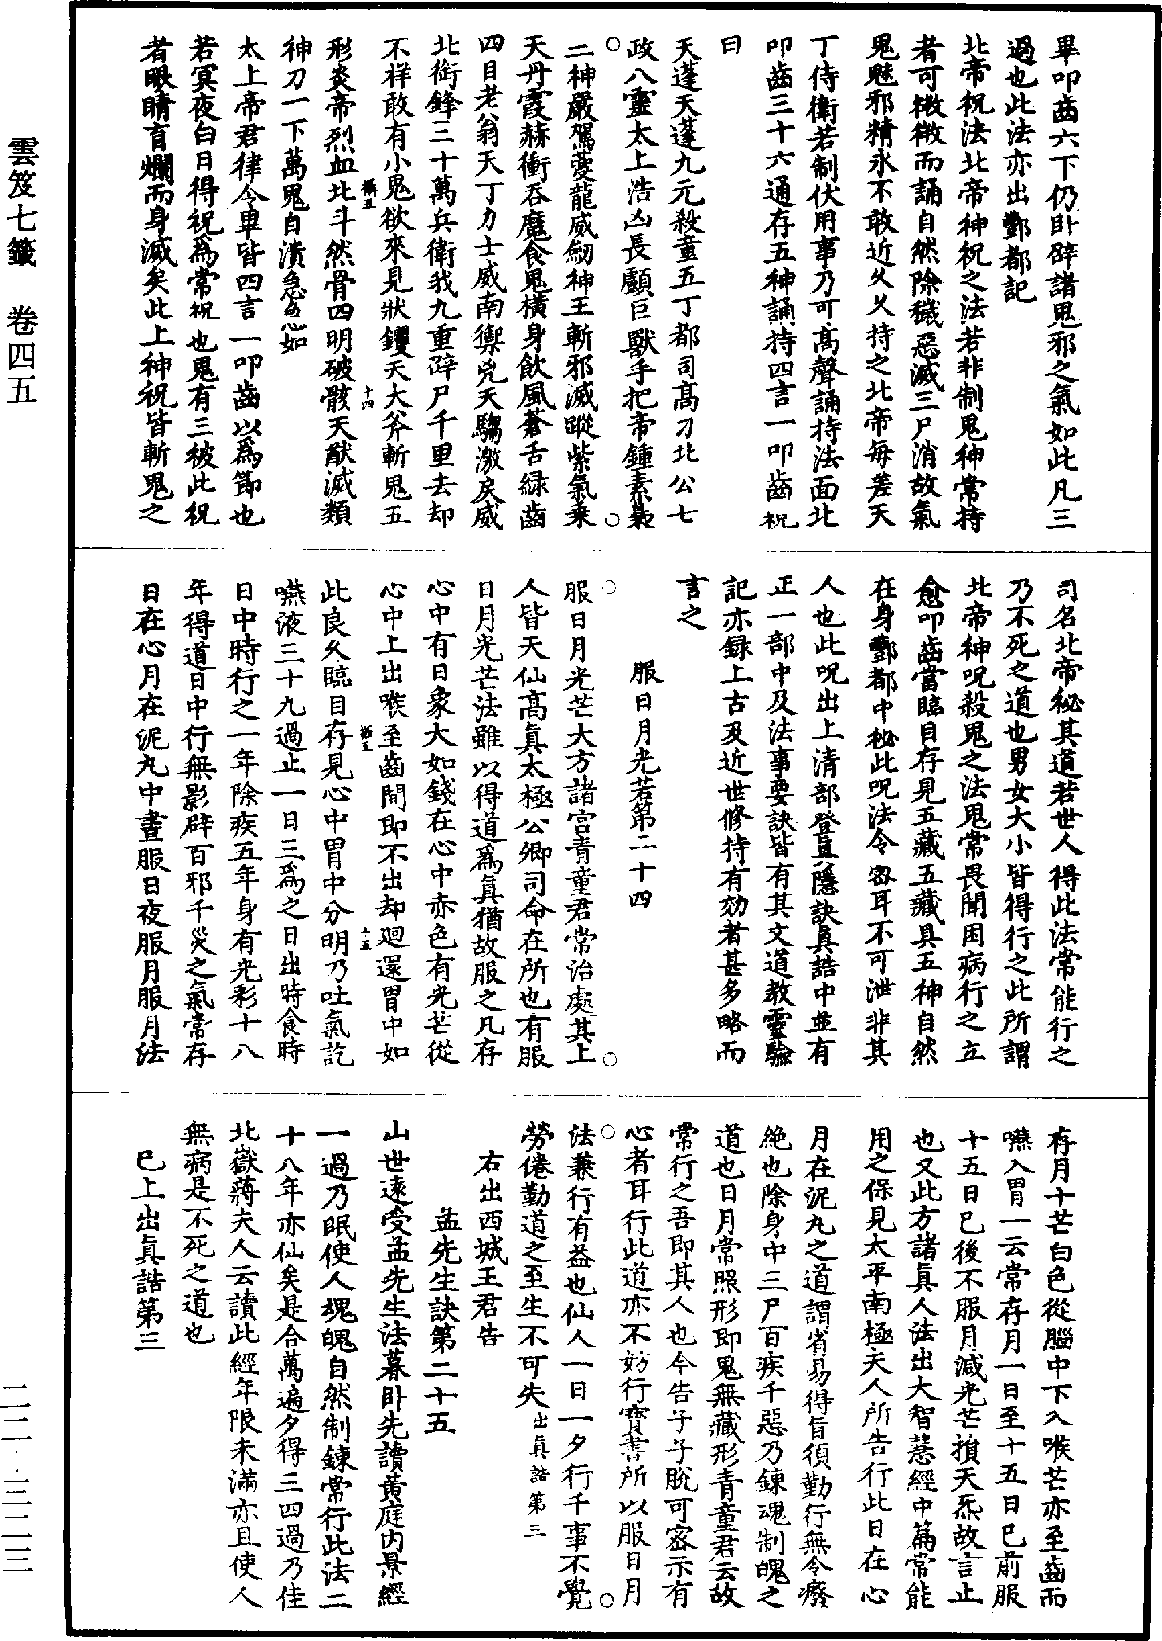 雲笈七籤　卷四五
畢叩齒六下仍卧辟諸鬼邪之氣如此凡三
過也此法亦出酆都記
北帝祝法北帝神祝之法若非制鬼神常持
者可微微而誦自然除穢惡滅三尸消故氣
鬼魅邪精永不敢近久久持之北帝每差天
丁侍衛若制伏用事乃可高聲誦持法面北
叩齒三十六通存五神誦持四言一叩齒祝
曰
天蓬天蓬九元殺童五丁都司高刀北公七
政八靈太上浩凶長顱巨獸手把帝鍾素梟
二神嚴駕夔龍威劒神王斬邪滅蹤紫氣乗
天丹霞赫衝吞魔食鬼橫身飲風蒼舌綠齒
四目老翁天丁力士威南禦兇天騶激戾威
北銜鋒三十萬兵衛我九重辟尸千里去却
不祥敢有小鬼欲來見狀钁天大斧斬鬼五
形炎帝烈血北斗然骨四明破骸天猷滅類
神刀一下萬鬼自潰急急如
太上帝君律令畢皆四言一叩齒以爲節也
若冥夜白日得祝爲常祝也鬼有三被此祝
者眼睛盲爛而身滅矣此上神祝皆斬鬼之
司名北帝祕其道若世人得此法常能行之
乃不死之道也男女大小皆得行之此所謂
北帝神呪殺鬼之法鬼常畏聞困病行之立
愈叩齒當臨目存見五藏五藏具五神自然
在身酆都中祕此呪法令密耳不可泄非其
人也此呪出上清部登真隱訣真誥中並有
正一部中及法事要訣皆有其文道教靈驗
記亦録上古及近世修持有効者甚多略而
言之
服日月光芒第二十四
服日月光芒大方諸宫青童君常治處其上
人皆天仙高真太極公卿司命在所也有服
日月光芒法雖以得道爲真猶故服之凡存
心中有日象大如錢在心中赤色有光芒從
心中上出喉至齒間即不出却廻還胃中如
此良久臨目存見心中胃中分明乃吐氣訖
嚥液三十九過止一日三爲之日出時食時
日中時行之一年除疾五年身有光彩十八
年得道日中行無影辟百邪千災之氣常存
日在心月在泥丸中晝服日夜服月服月法
存月十芒白色從腦中下入喉芒亦至齒而
嚥入胃一云常存月一日至十五日已前服
十五日已後不服月減光芒損天炁故言止
也又此方諸真人法出大智慧經中篇常能
用之保見太平南極夫人所告行此日在心
月在泥丸之道謂省易得旨須勤行無令癈
絶也除身中三尸百疾千惡乃鍊魂制魄之
道也日月常照形即鬼無藏形青童君云故
常行之吾即其人也今告子子脫可密示有
心者耳行此道亦不妨行寶書所以服日月
法兼行有益也仙人一日一夕行千事不覺
勞倦勤道之至生不可失出真誥第三
右出西城王君告
孟先生訣第二十五
山世遠受孟先生法暮卧先讀黃庭内景經
一過乃眠使人魂魄自然制鍊常行此法二
十八年亦仙矣是合萬遍夕得三四過乃佳
北嶽蔣夫人云讀此經年限未滿亦且使人
無病是不死之道也
已上出真誥第三
二二·三二三